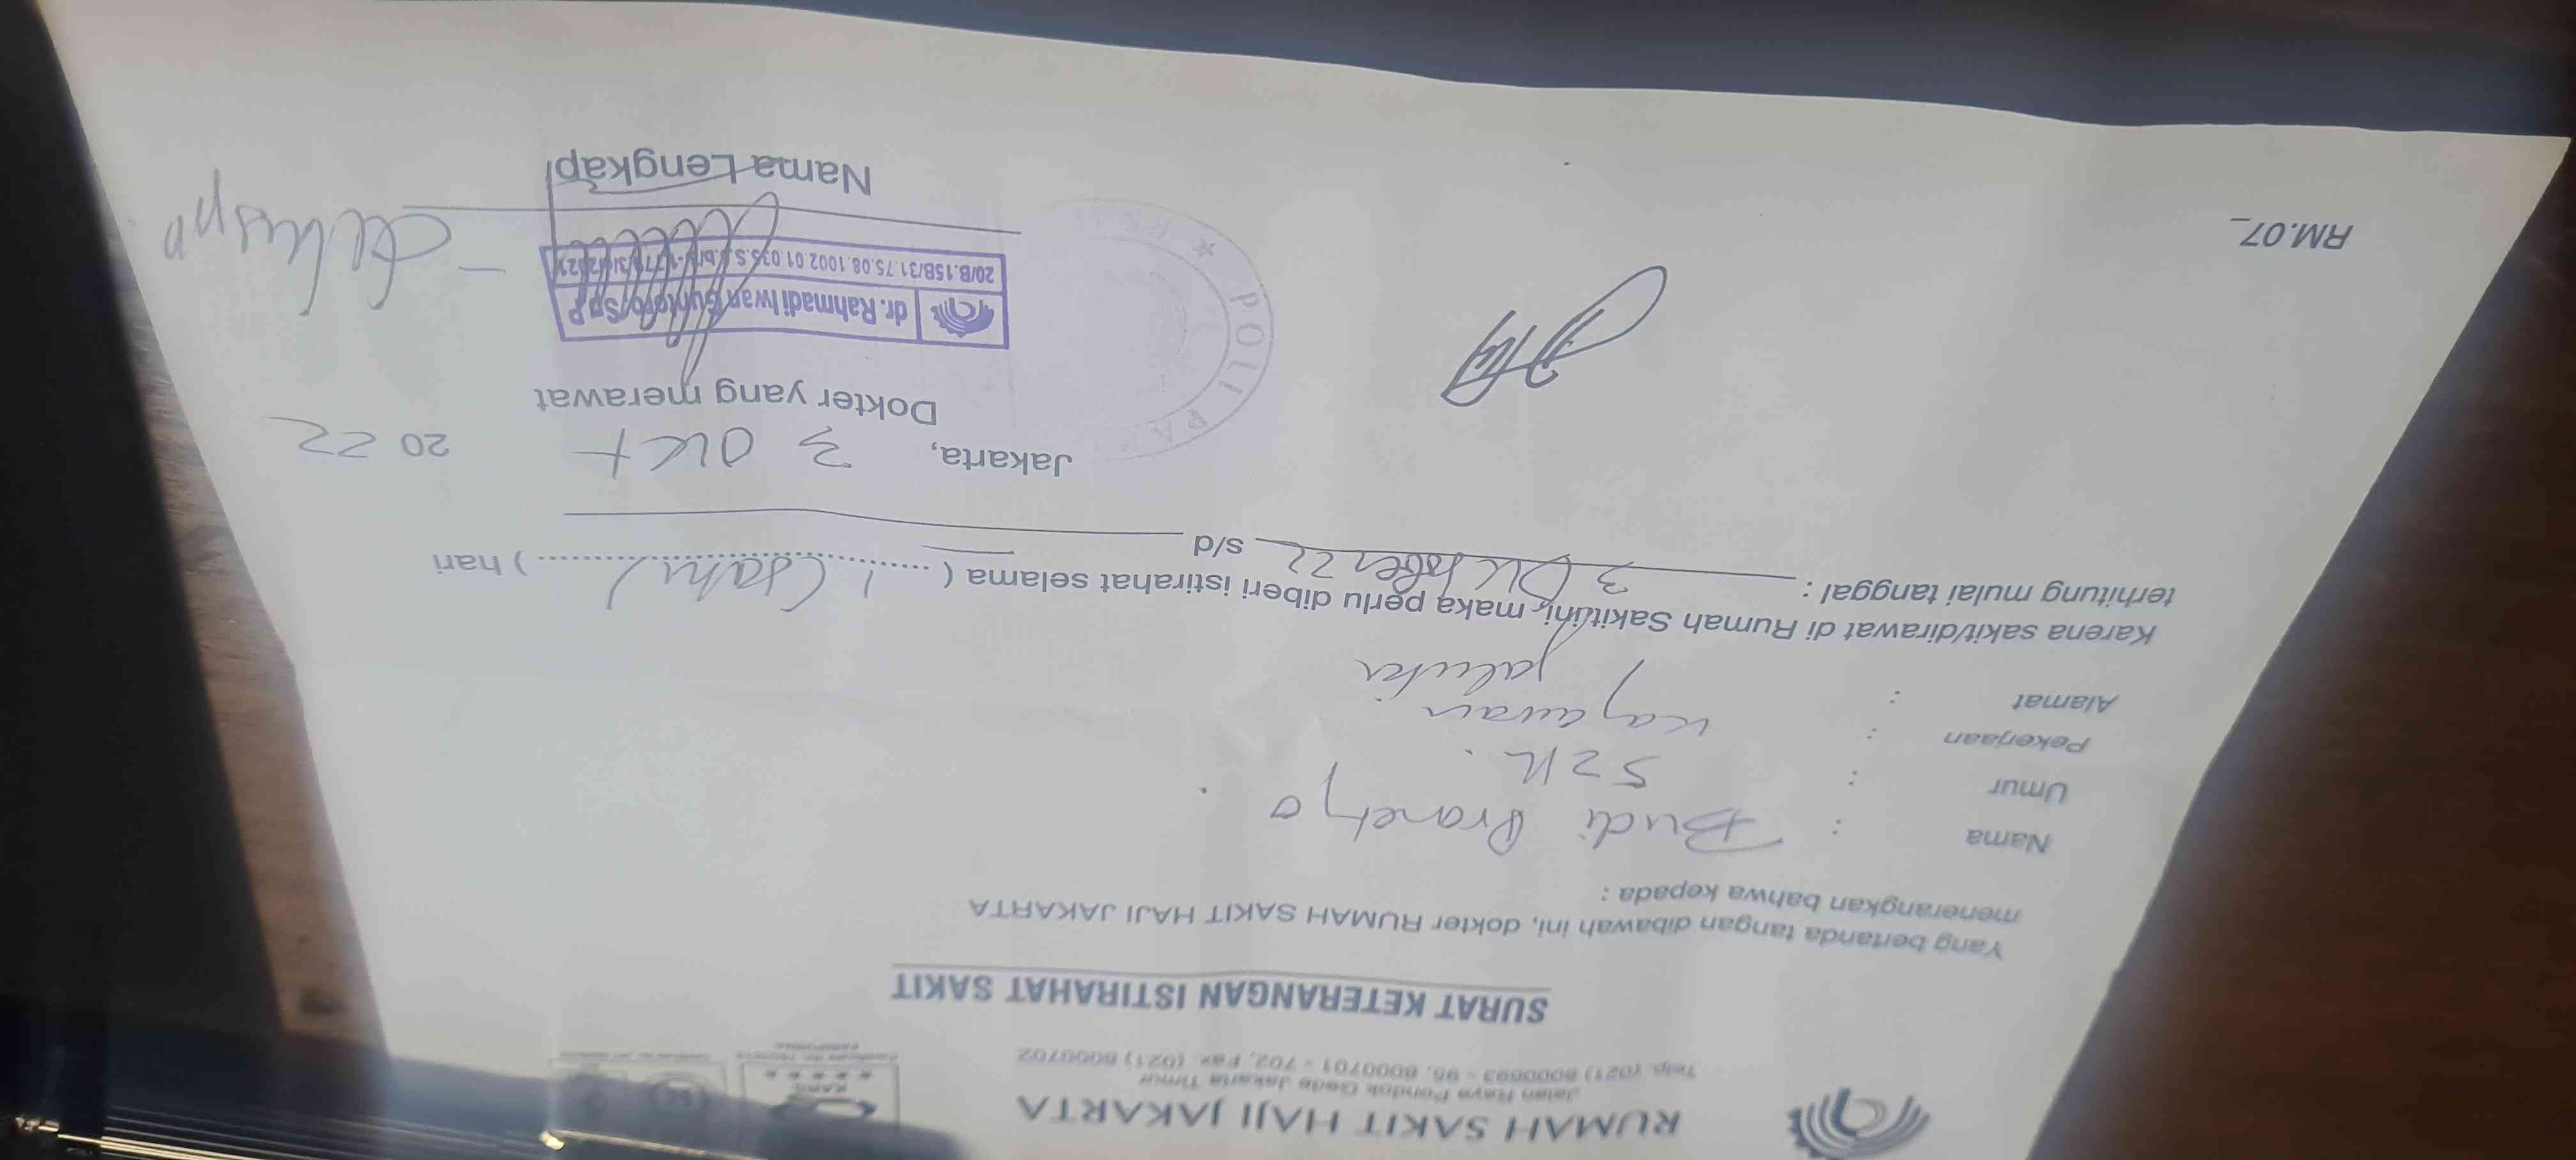 RUMAH SAKIT HAJI JAKARTA
Jalan Raya Pondok Gede Jakarta Timur
Telp. (021) 8000693 - 95, 8000701 - 702, Fax. (021) 8000702
KARS
SURAT KETERANGAN ISTIRAHAT SAKIT
Yang bertanda tangan dibawah ini, dokter RUMAH SAKIT HAJI JAKARTA
menerangkan bahwa kepada :
Nama : Budi Pranetyo
Umur : 52
Pekerjaan :
Alamat :
Karena sakit/dirawat di Rumah Sakit ini, maka perlu diberi istirahat selama ( 1 (satu) ) hari
terhitung mulai tanggal : 3 Oktober 22 s/d
Jakarta, 3 Okt 20 22
Dokter yang merawat
dr. Rahmadi Iwan Guntoro, Sp.P
Nama Lengkap
POLI PAR
RM.07_